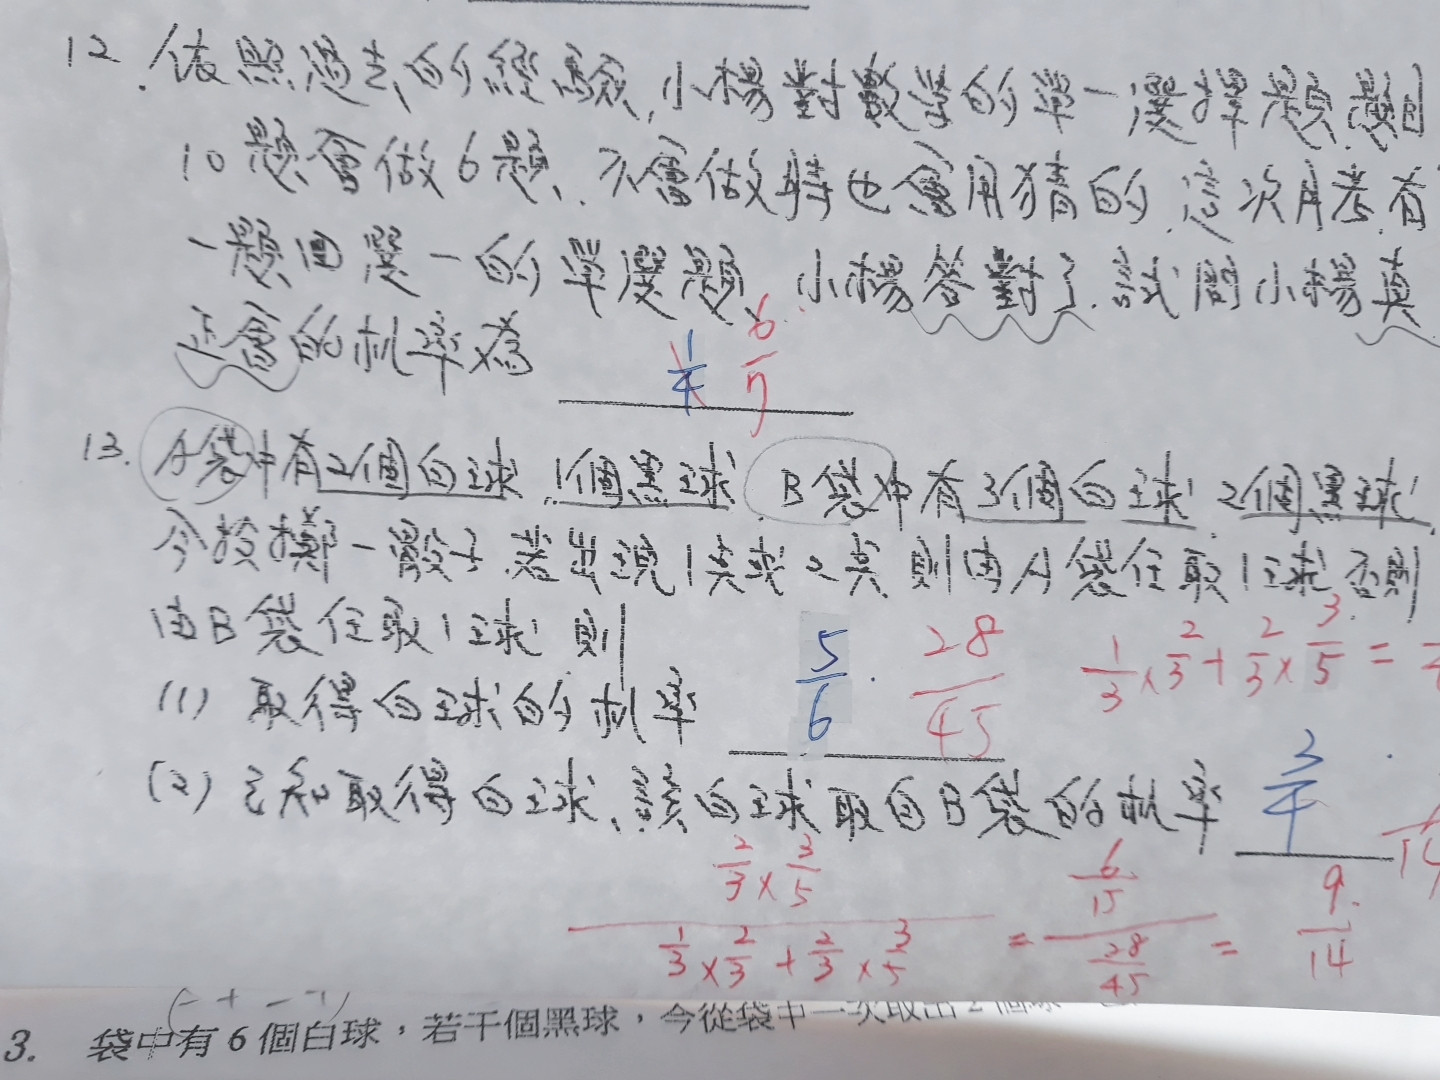 12. 依照過去的經驗,小楊對數學的單一選擇題,選
10題會做6題、不會做時也會用猜的.這次月考有
一題四選一的單選題、小楊答對了.試問小楊真
正會的机率為 1/4 6/7
13. A袋中有2個白球 1個黑球 B袋中有3個白球 2個黑球
今投擲一骰子.若出現1點或2點則由A袋任取1球 否則
由B袋任取1球 則
(1) 取得白球的机率 5/6 28/45 1/3×2/3+2/3×3/5=
(2) 已知取得白球、該白球取自B袋的机率 3/4
2/3×3/5 / 1/3×2/3+2/3×3/5 = 6/15 / 28/45 = 9/14
3. 袋中有6個白球,若干個黑球,今從袋中一次取出2個